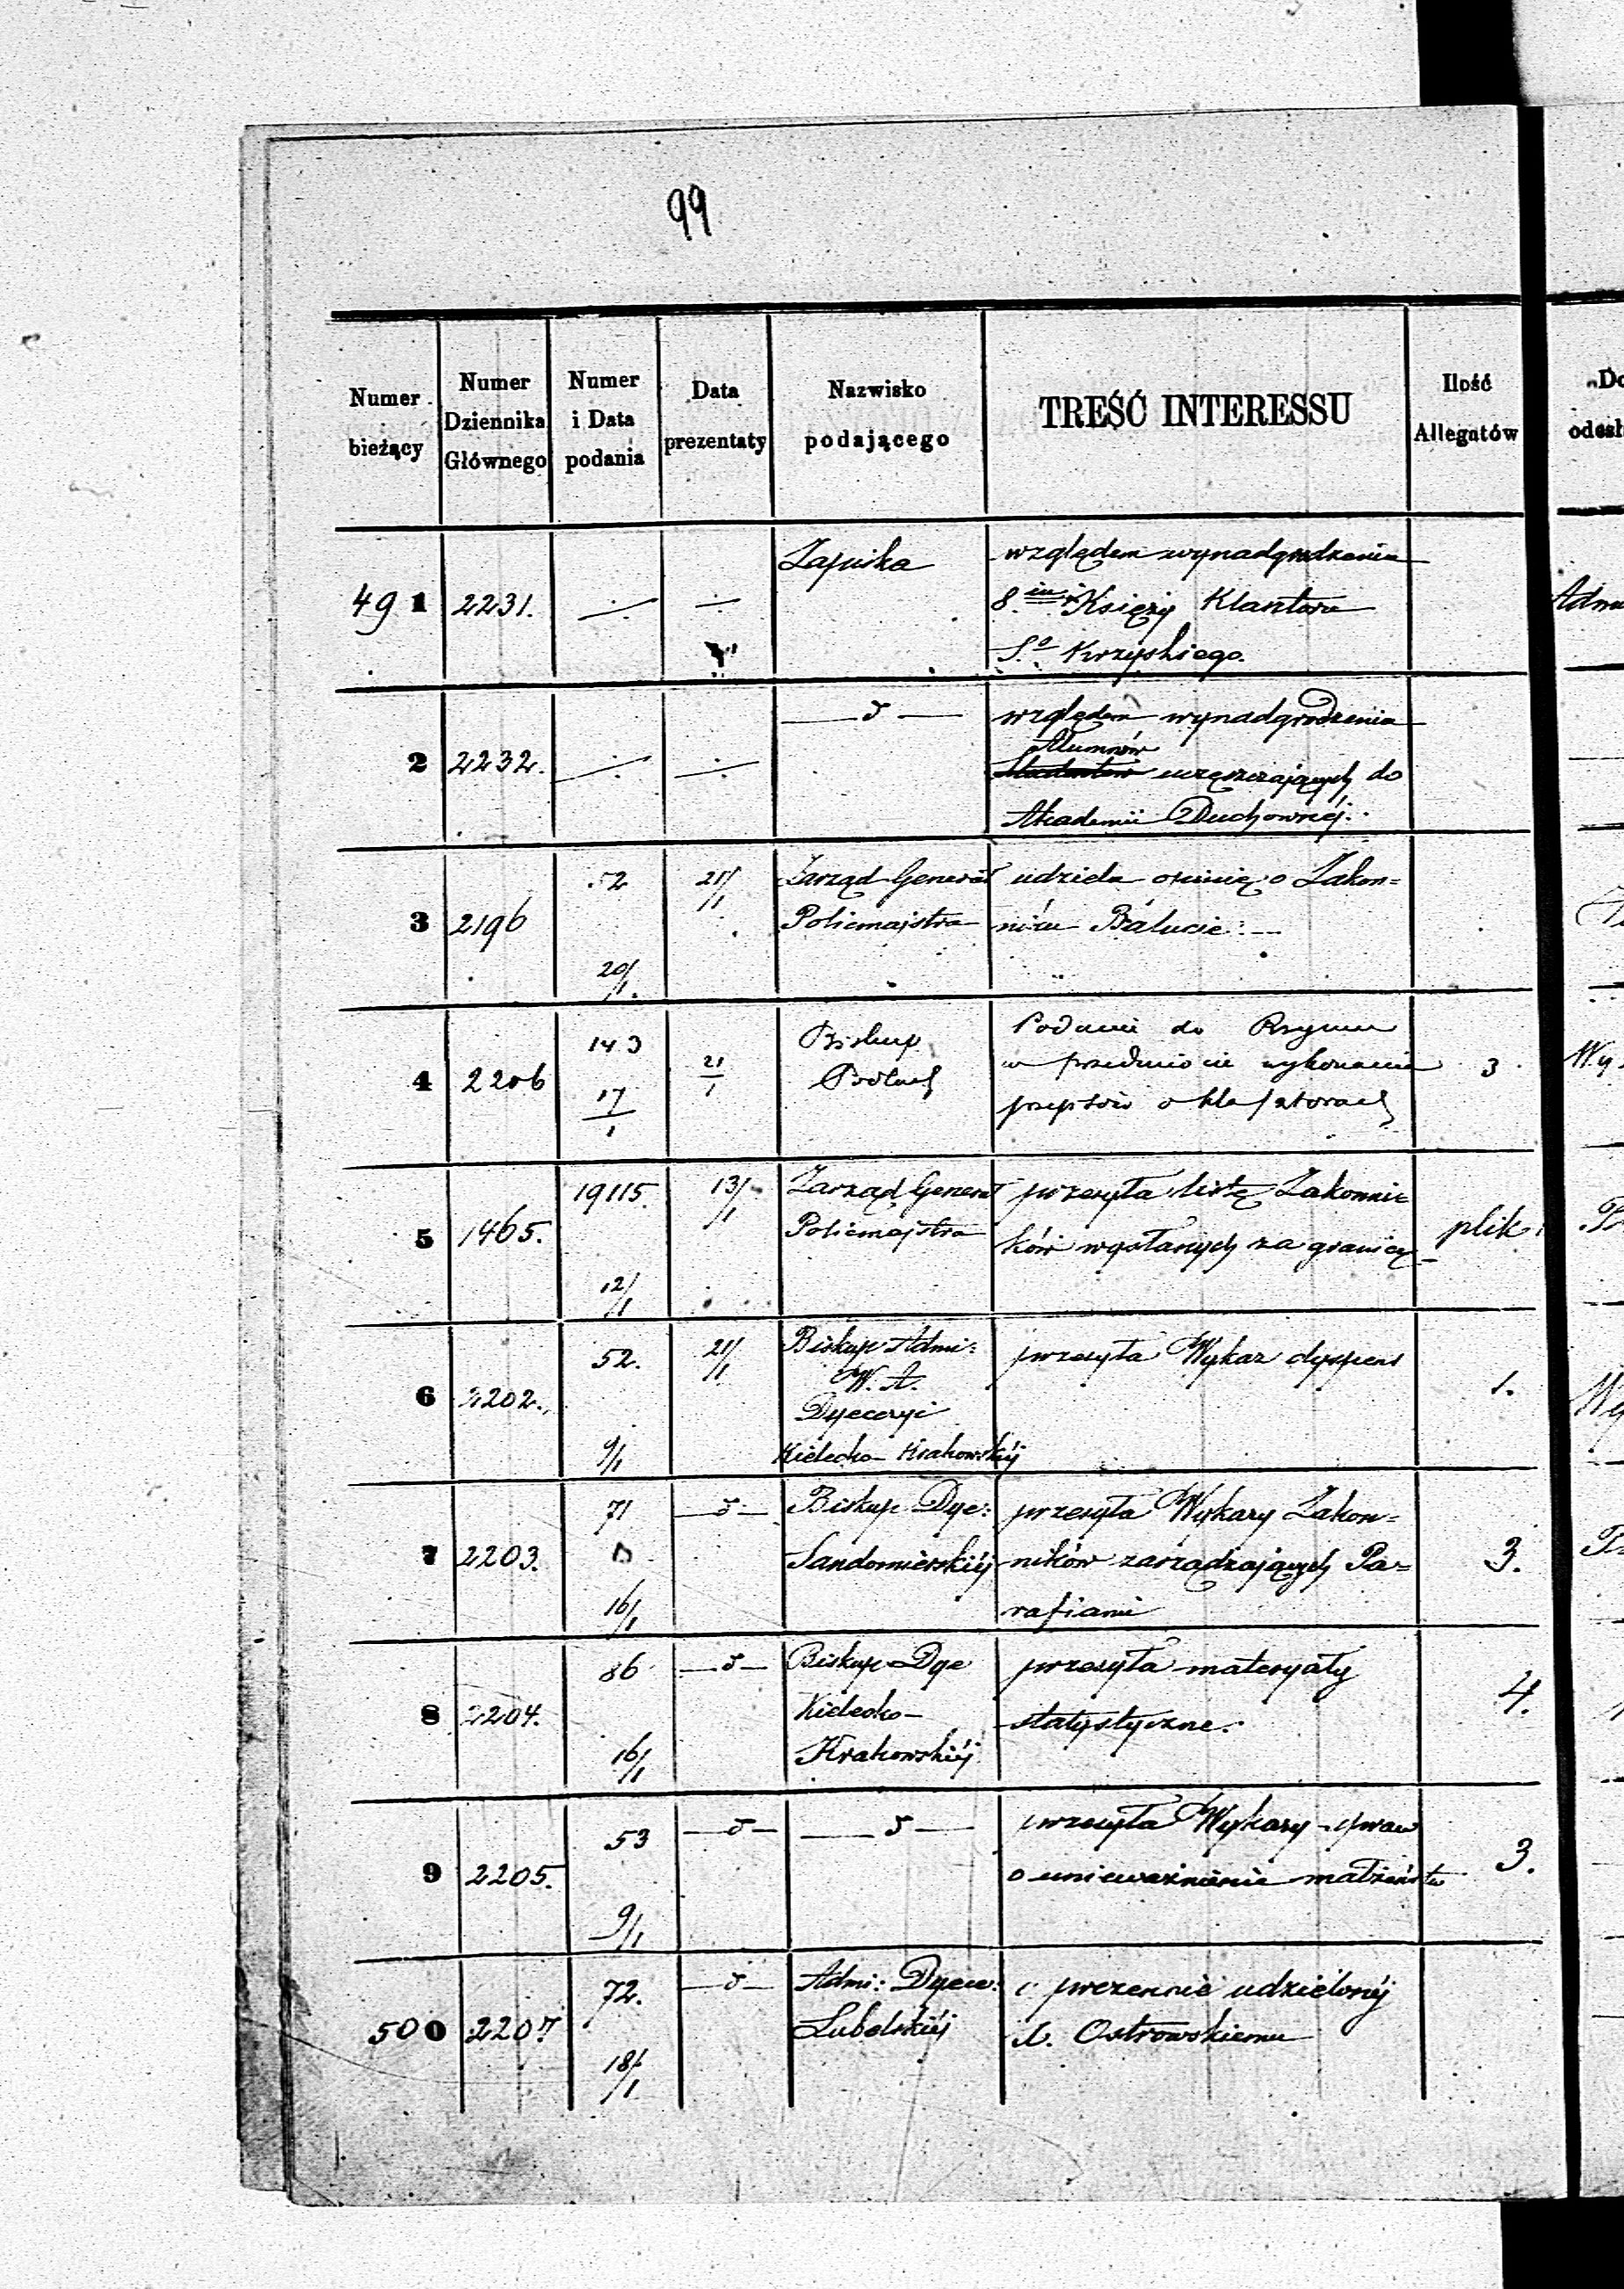 99
Numer bieżący | Numer Dziennika Głównego | Numer i Data podania | Data prezentaty | Nazwisko podającego | TREŚĆ INTERESSU | Ilość Allegatów
491 | 2231. | ÷ | ÷ | Zapiska | względem wynadgrodzenia
8.iu Księży Klasztoru
S.o Krzyskiego.
2 | 2232. | ÷ | ÷ | — d — | względem wynadgrodzenia
Alumnów
Studentów uczęszczających do
Akademii Duchownéj.
3 | 2196 | 52 20/1. | 21/1 | Zarząd Generał Policmajstra | udziela opinię o Zakon=
niku Balucie. —
4 | 2206 | 143 17/1 | 21/1 | Biskup Podlach | Podanie do Rzymu
w przedmiocie wykonania
przepisów o klasztorach | 3
5 | 1465. | 19115. 12/1 | 13/1 | Zarząd Generał Policmajstra | przesyła listę Zakonni=
ków wysłanych za granicę | plik.
6 | 2202. | 52. 9/1 | 21/1 | Biskup Admi: W. A. Dyecezyi Kielecko-Krakowskiéj | przesyła Wykaz dyspens | 1.
7 | 2203. | 71 16/1 | — d — | Biskup Dye: Sandomierskiéj | przesyła Wykazy Zakon=
ników zarządzających Pa=
rafiami | 3.
8 | 2204. | 86 16/1 | — d — | Biskup Dye Kielecko- Krakowskiéj | przesyła materyały
statystyczne. | 4.
9 | 2205. | 53 9/1 | — d — | — d — | przesyła Wykazy spraw
o unieważnienie małżeństw | 3.
500 | 2207 | 72. 18/1 | — d — | Admi: Dyece: Lubelskiéj | o prezencie udzielonéj
X. Ostrowskiemu